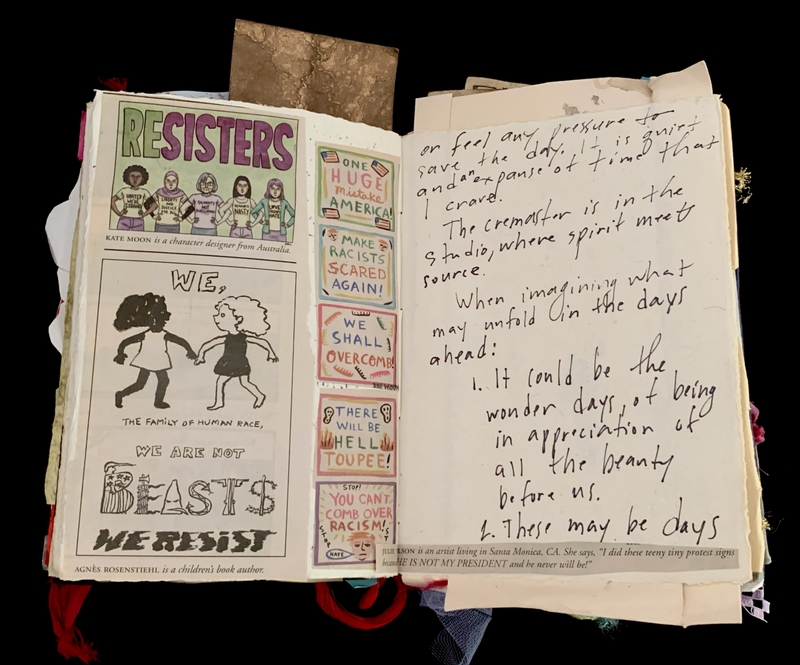 RESISTERS
UNITED
WE'RE
STRONGER
LIBERTY
AND
JUSTICE
FOR ALL
NASTY
LOVE
KATE MOON is a character designer from Australia.
WE,
THE FAMILY OF HUMAN RACE,
WE ARE NOT
BEASTS
WE RESIST
AGNÈS ROSENSTIEHL is a children's book author.
ONE
HUGE
mistake
AMERICA!
MAKE
RACISTS
SCARED
AGAIN!
WE
SHALL
OVERCOMB!
THERE
WILL BE
HELL
TOUPEE!
STOP!
YOU CAN'T
COMB OVER
RACISM!
STOP
HATE
or feel any pressure to
save the day. It is quiet
and an expanse of time that
I crave.
The cremaster is in the
studio, where spirit meets
source.
When imagining what
may unfold in the days
ahead:
1. It could be the
wonder days, of being
in appreciation of
all the beauty
before us.
2. These may be days
is an artist living in Santa Monica, CA. She says, "I did these teeny tiny protest signs
HE IS NOT MY PRESIDENT and he never will be!"